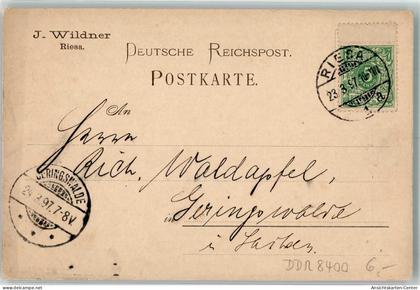 J. Wildner
Riesa.
DEUTSCHE REICHSPOST.
POSTKARTE.
RIESA
23.3.97
a.
An
Herrn
Rich. Waldapfel,
in Geringswalde
i. Sachsen
GERINGSWALDE
24.3.97. 7-8V.
DDR 8400
6,-